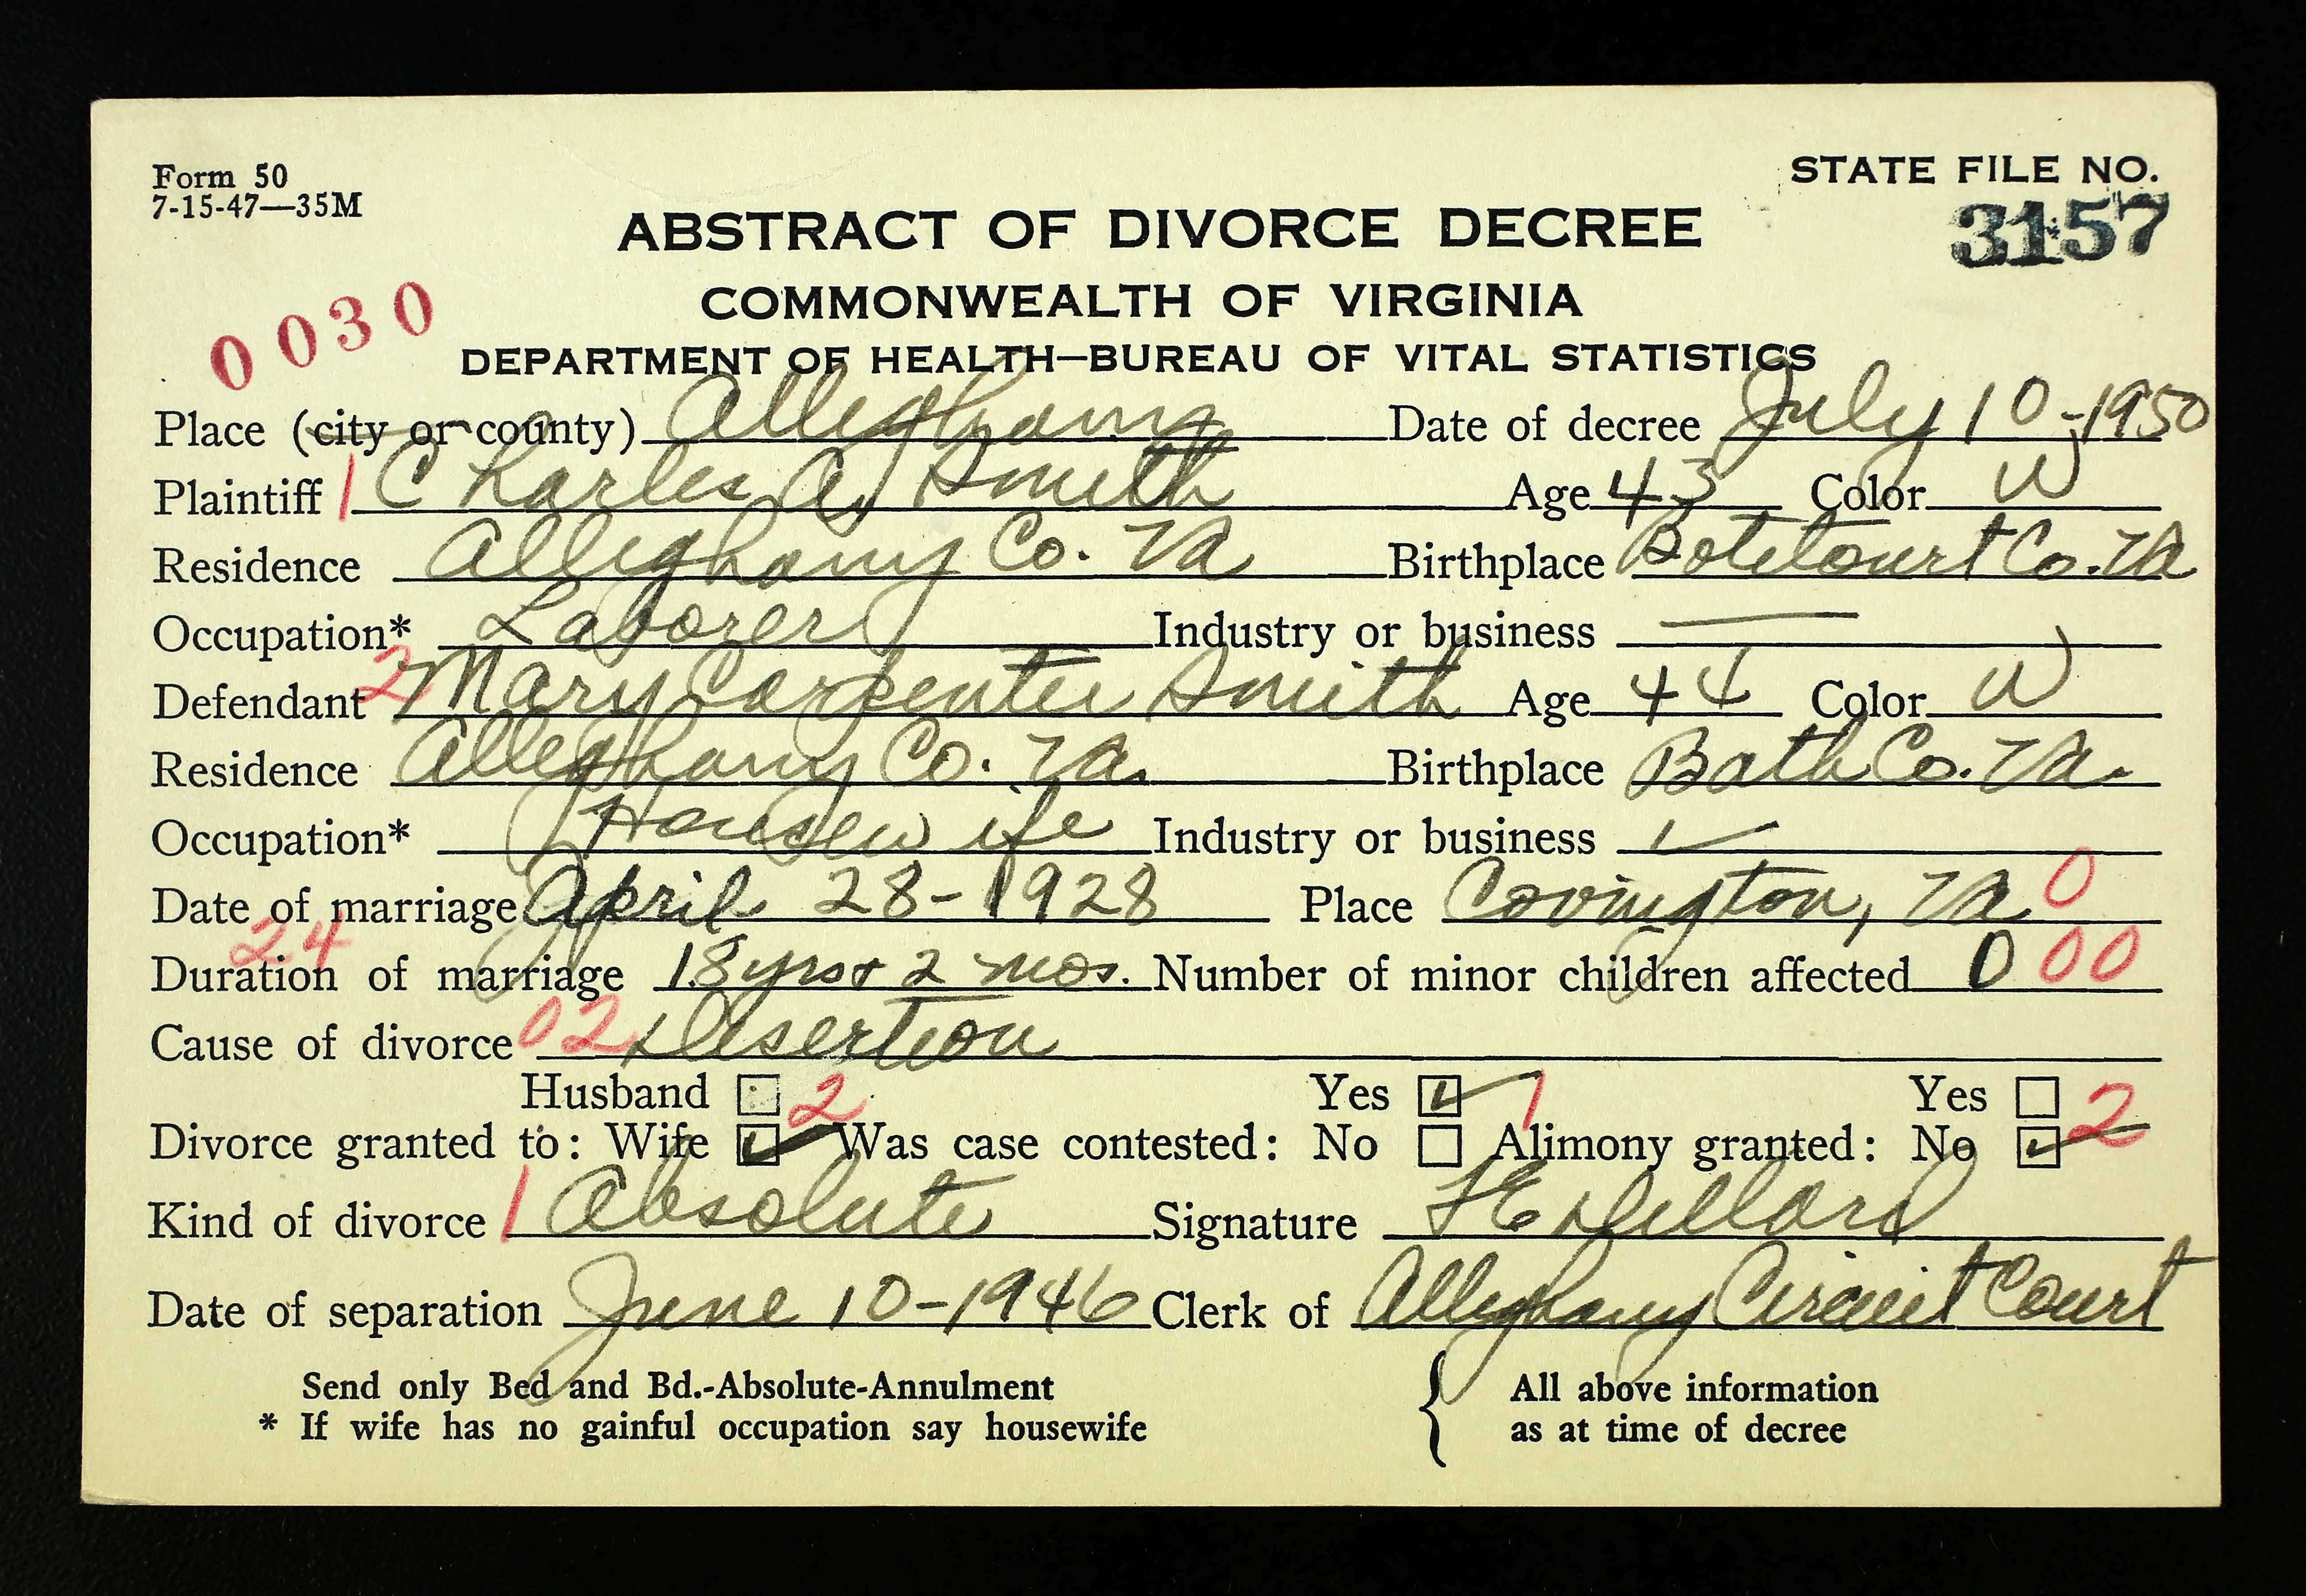 Form 50
7-15-47—35M
STATE FILE NO.
3157
ABSTRACT OF DIVORCE DECREE
COMMONWEALTH OF VIRGINIA
0030
DEPARTMENT OF HEALTH—BUREAU OF VITAL STATISTICS
Place (city or county) Alleghany Date of decree July 10-1950
Plaintiff 1 Charles A. Smith Age 43 Color W
Residence Alleghany Co. Va Birthplace Botetourt Co. Va
Occupation* Laborer Industry or business —
Defendant 2 Mary Carpenter Smith Age 44 Color W
Residence Alleghany Co. Va. Birthplace Bath Co. Va.
Occupation* Housewife Industry or business ✓
Date of marriage April 28-1928 Place Covington, Va 0
24
Duration of marriage 18 yrs + 2 mos. Number of minor children affected 0 00
Cause of divorce 02 Desertion
Husband ☐ 2 Yes ☑ 1 Yes ☐ 2
Divorce granted to: Wife ☑ Was case contested: No ☐ Alimony granted: No ☑
Kind of divorce 1 Absolute Signature F E Dillard
Date of separation June 10-1946 Clerk of Alleghany Circuit Court
Send only Bed and Bd.-Absolute-Annulment { All above information
* If wife has no gainful occupation say housewife as at time of decree